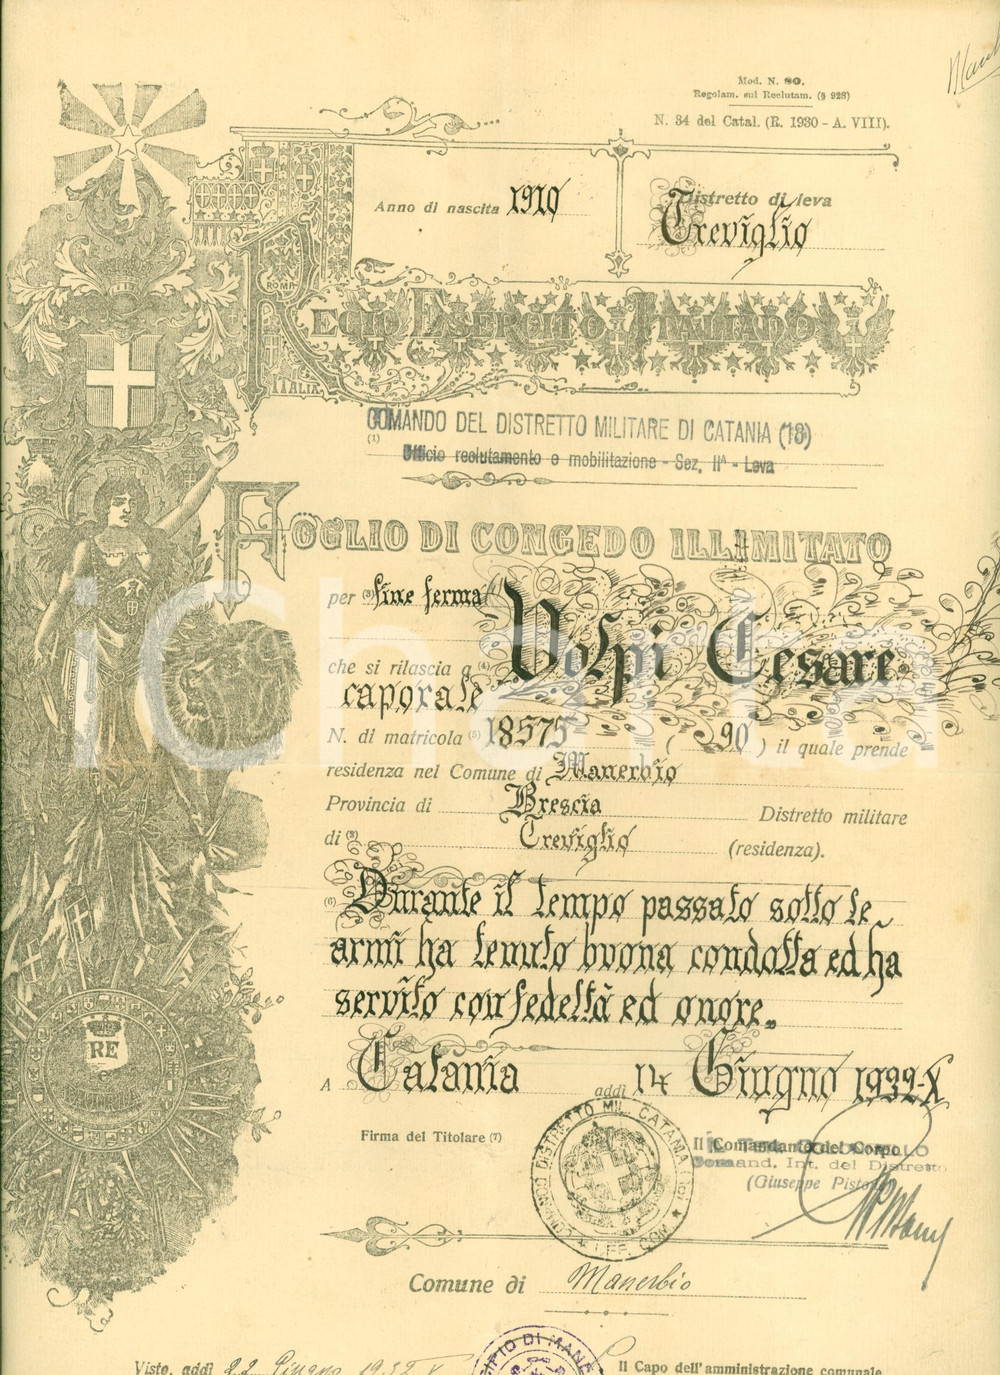 Mod. N. 80.
Regolam. sul Reclutam. (§ 928)
N. 34 del Catal. (R. 1930 - A. VIII).
Anno di nascita 1910
Distretto di leva
Treviglio
ROMA
REGIO ESERCITO ITALIANO
ITALIA
COMANDO DEL DISTRETTO MILITARE DI CATANIA (13)
(1)
Ufficio reclutamento e mobilitazione - Sez. IIª - Leva
FOGLIO DI CONGEDO ILLIMITATO
per (3) fine ferma
che si rilascia a (4) Volpi Cesare
caporale
N. di matricola (5) 18575 ( 90 ) il quale prende
residenza nel Comune di Manerbio
Provincia di Brescia Distretto militare
di (3) Treviglio (residenza).
(6) Durante il tempo passato sotto le
armi ha tenuto buona condotta ed ha
servito con fedeltà ed onore.
A Catania addì 14 Giugno 1932-X
Firma del Titolare (7)
Il Comandante del Corpo
Comand. Int. del Distretto
(Giuseppe
COMANDO DISTRETTO MIL. CATANIA
RE
Comune di Manerbio
Visto, addì 22 Giugno 1932 X
Il Capo dell'amministrazione comunale
iCharta